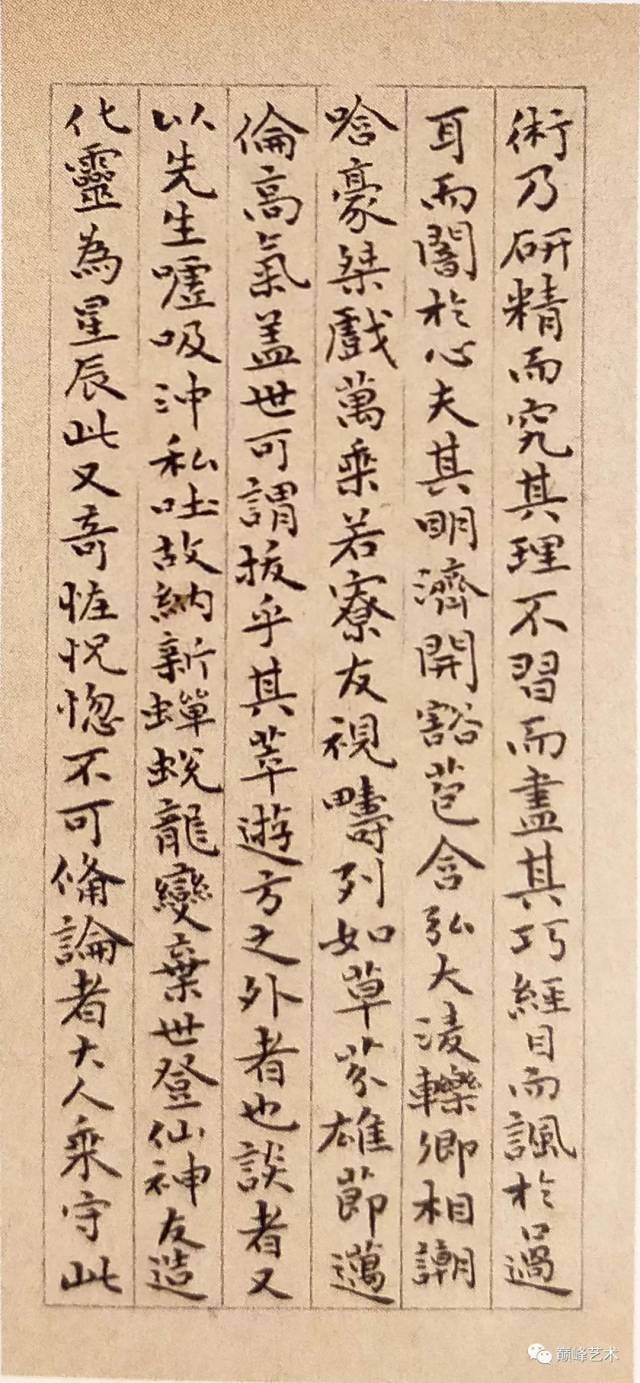 術乃研精而究其理不習而盡其巧經目而諷於口過
耳而闇於心夫其明濟開豁苞含弘大淩轢卿相謿
唅豪桀戲萬乘若寮友視疇列如草芥雄節邁
倫高氣盖世可謂拔乎其萃遊方之外者也談者又
以先生噓吸沖和吐故納新蟬蛻龍變棄世登仙神友造
化靈為星辰此又奇恠怳惚不可偹論者大人来守此
巅峰艺术